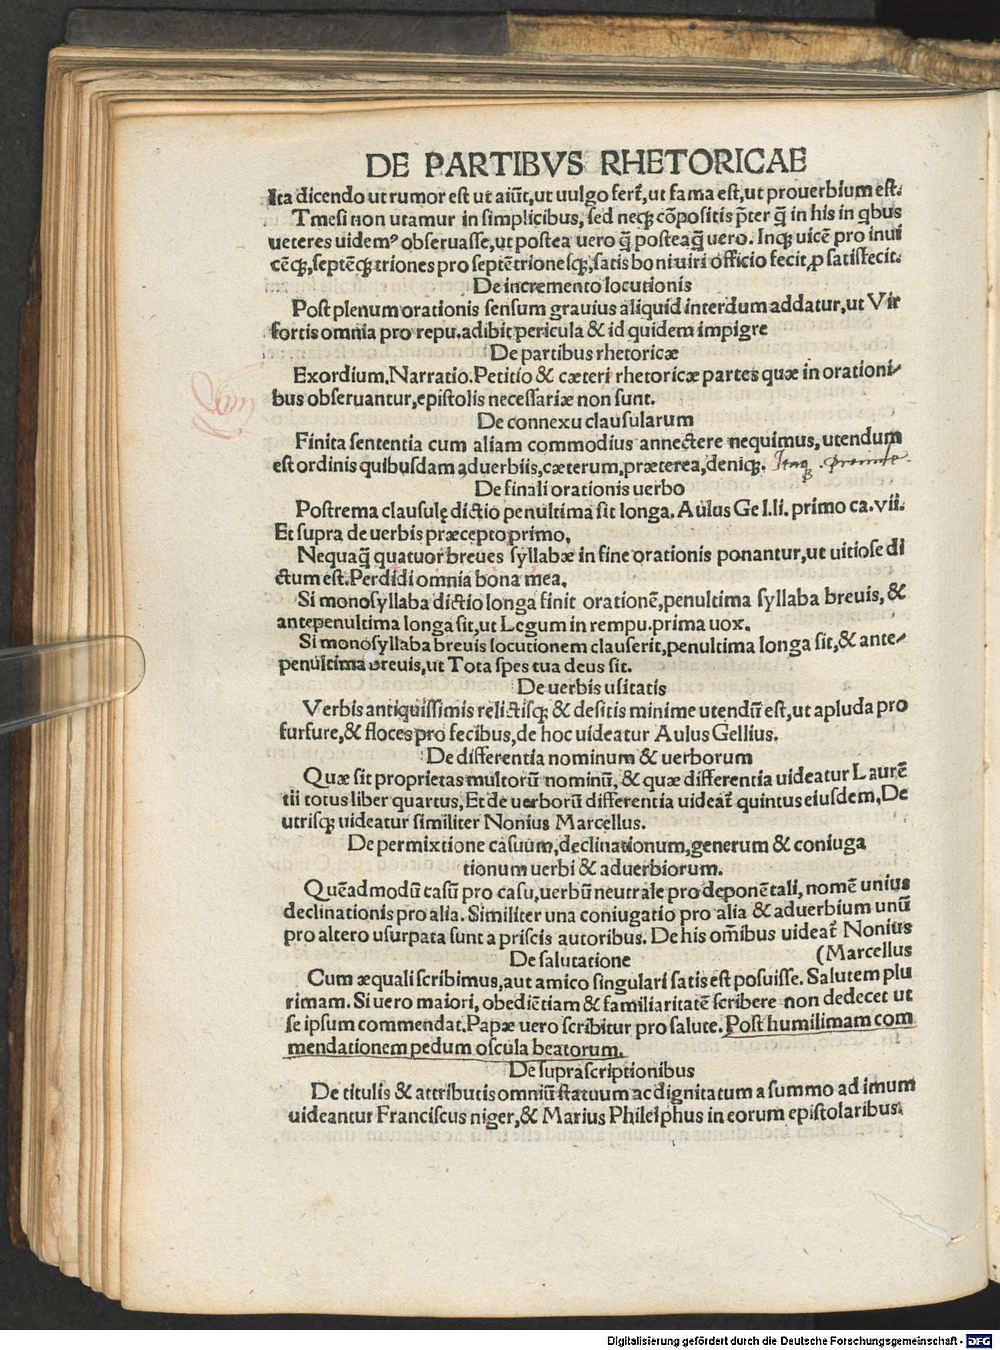 DE PARTIBVS RHETORICAE
Ita dicendo ut rumor est ut aiūt, ut uulgo fert̄, ut fama est, ut prouerbium est.
Tmesi non utamur in simplicibus, sed neqꝫ cōpositis p̄ter q̄ in his in qbus
ueteres uidemꝰ obseruasse, ut postea uero q̄ posteaq̄ uero. Inqꝫ uicē pro inui
cēqꝫ, septēqꝫ triones pro septētrionesqꝫ, satis boni uiri officio fecit, ꝓ satisfecit.
De incremento locutionis
Post plenum orationis sensum grauius aliquid interdum addatur, ut Vir
fortis omnia pro repu. adibit pericula & id quidem impigre
De partibus rhetoricæ
Exordium. Narratio. Petitio & cæteri rhetoricæ partes quæ in orationi-
bus obseruantur, epistolis necessariæ non sunt.
De connexu clausularum
Finita sententia cum aliam commodius annectere nequimus, utendum
est ordinis quibusdam aduerbiis, cæterum, præterea, deniqꝫ. Itaqꝫ. proinde.
De finali orationis uerbo
Postrema clausulę dictio penultima sit longa. Aulus Gel. li. primo ca. vii.
Et supra de uerbis præcepto primo.
Nequaq̄ quatuor breues syllabæ in fine orationis ponantur, ut uitiose di
ctum est. Perdidi omnia bona mea.
Si monosyllaba dictio longa finit orationē, penultima syllaba breuis, &
antepenultima longa sit, ut Legum in rempu. prima uox.
Si monosyllaba breuis locutionem clauserit, penultima longa sit, & ante-
penultima breuis, ut Tota spes tua deus sit.
De uerbis usitatis
Verbis antiquissimis relictisqꝫ & desitis minime utendū est, ut apluda pro
furfure, & floces pro fecibus, de hoc uideatur Aulus Gellius.
De differentia nominum & uerborum
Quæ sit proprietas multorū nominū, & quæ differentia uideatur Laurē
tii totus liber quartus, Et de uerborū differentia uideat̄ quintus eiusdem, De
utrisqꝫ uideatur similiter Nonius Marcellus.
De permixtione casuum, declinationum, generum & coniuga
tionum uerbi & aduerbiorum.
Quēadmodū casū pro casu, uerbū neutrale pro deponētali, nomē unius
declinationis pro alia. Similiter una coniugatio pro alia & aduerbium unū
pro altero usurpata sunt a priscis autoribus. De his om̄ibus uideat̄ Nonius
De salutatione (Marcellus
Cum æquali scribimus, aut amico singulari satis est posuisse. Salutem plu
rimam. Si uero maiori, obediētiam & familiaritatē scribere non dedecet ut
se ipsum commendat. Papæ uero scribitur pro salute. Post humilimam com
mendationem pedum oscula beatorum.
De suprascriptionibus
De titulis & attributis omniū statuum ac dignitatum a summo ad imum
uideantur Franciscus niger, & Marius Philelphus in eorum epistolaribus.
Digitalisierung gefördert durch die Deutsche Forschungsgemeinschaft - DFG